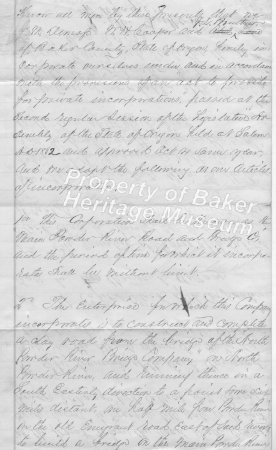 Know all men by these Presents that we
Cooper and
of Baker County, State of Oregon, hereby in-
corporate ourselves under and in accordance
with the provisions of an act to provide
for private incorporations, passed at the
Second regular Session of the Legislative As-
sembly of the State of Oregon held at Salem
and approved Oct. same year,
And we adopt the following as our Articles
of incorporation.
1st This Corporation shall
Main Powder River Road and Bridge Co.
and the period of time for which it incorpo-
rates shall be without limit.
2d The enterprise for which this Company
incorporates is to construct and complete
a way road from the bridge of the North
Powder River Bridge Company on North
Powder River, and running thence in a
South Easterly direction to a point some six
miles distant, one half mile from Powder River
on the old Emigrant road, East of said River
to build a bridge on the Main Powder River
Property of Baker
Heritage Museum